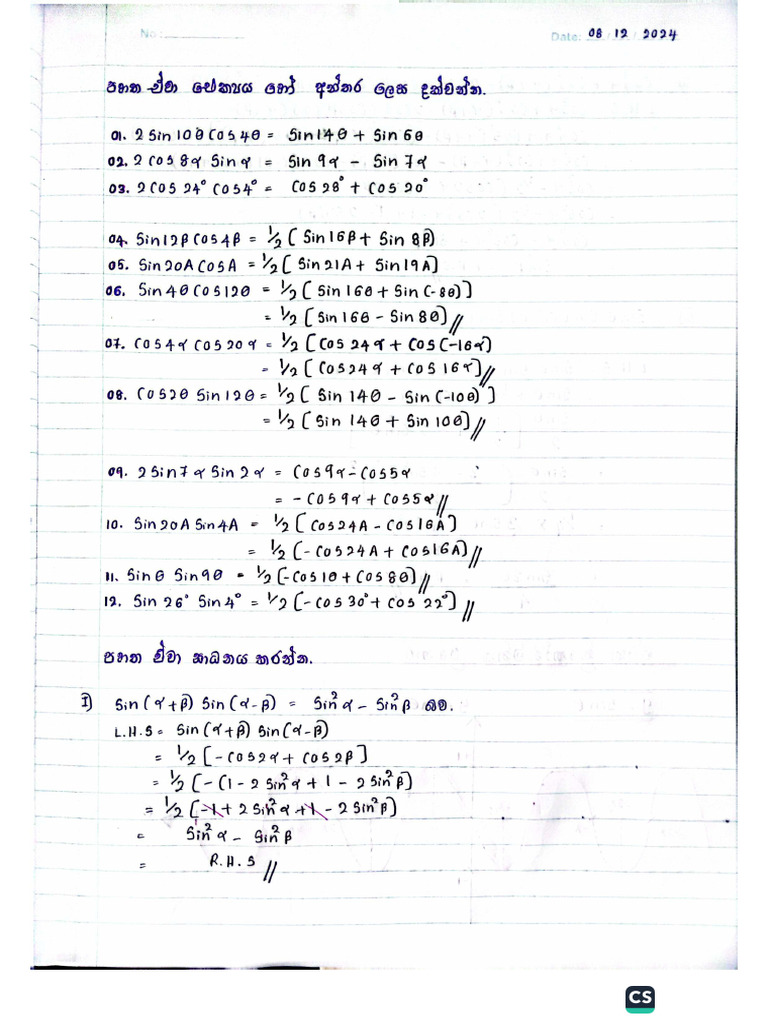 No :
Date: 08 / 12 / 2024
පහත ඒවා ඓක්‍යය හෝ අන්තර ලෙස දක්වන්න.
01. 2 Sin 10θ Cos 4θ = Sin 14θ + Sin 6θ
02. 2 cos 8α Sin α = Sin 9α - Sin 7α
03. 2 Cos 24° Cos 4° = Cos 28° + Cos 20°
04. Sin 12β Cos 4β = 1/2 [ Sin 16β + Sin 8β)
05. Sin 20A Cos A = 1/2 [ Sin 21A + Sin 19A]
06. Sin 4θ Cos 12θ = 1/2 [ Sin 16θ + Sin (-8θ)]
= 1/2 [Sin 16θ - Sin 8θ] //
07. Cos 4α Cos 20α = 1/2 [Cos 24α + Cos (-16α)
= 1/2 [ Cos 24α + Cos 16α] //
08. Cos 2θ Sin 12θ = 1/2 [ Sin 14θ - Sin (-10θ) ]
= 1/2 [ Sin 14θ + Sin 10θ] //
09. 2 Sin 7α Sin 2α = Cos 9α - Cos 5α
= - Cos 9α + Cos 5α //
10. Sin 20A Sin 4A = 1/2 [ Cos 24A - Cos 16A]
= 1/2 [- Cos 24A + Cos 16A] //
11. Sin θ Sin 9θ = 1/2 [- Cos 10 + Cos 8θ] //
12. Sin 26° Sin 4° = 1/2 [- Cos 30° + Cos 22°] //
පහත ඒවා සාධනය කරන්න.
I) Sin (α+β) Sin (α-β) = Sin²α - Sin²β බව.
L.H.S = Sin (α+β) Sin (α-β)
= 1/2 [- Cos 2α + Cos 2β]
= 1/2 [- (1 - 2 Sin²α + 1 - 2 Sin²β]
= 1/2 [-1 + 2 Sin²α + 1 - 2 Sin²β)
= Sin²α - Sin²β
= R.H.S //
CS